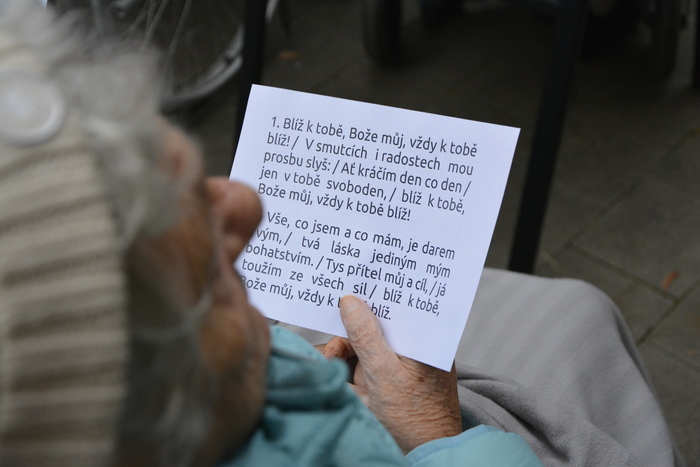 1. Blíž k tobě, Bože můj, vždy k tobě
blíž! / V smutcích i radostech mou
prosbu slyš: / Ať kráčím den co den /
jen v tobě svoboden, / blíž k tobě,
Bože můj, vždy k tobě blíž!
Vše, co jsem a co mám, je darem
vým, / tvá láska jediným mým
bohatstvím. / Tys přítel můj a cíl, / já
toužím ze všech sil / blíž k tobě,
Bože můj, vždy k blíž.